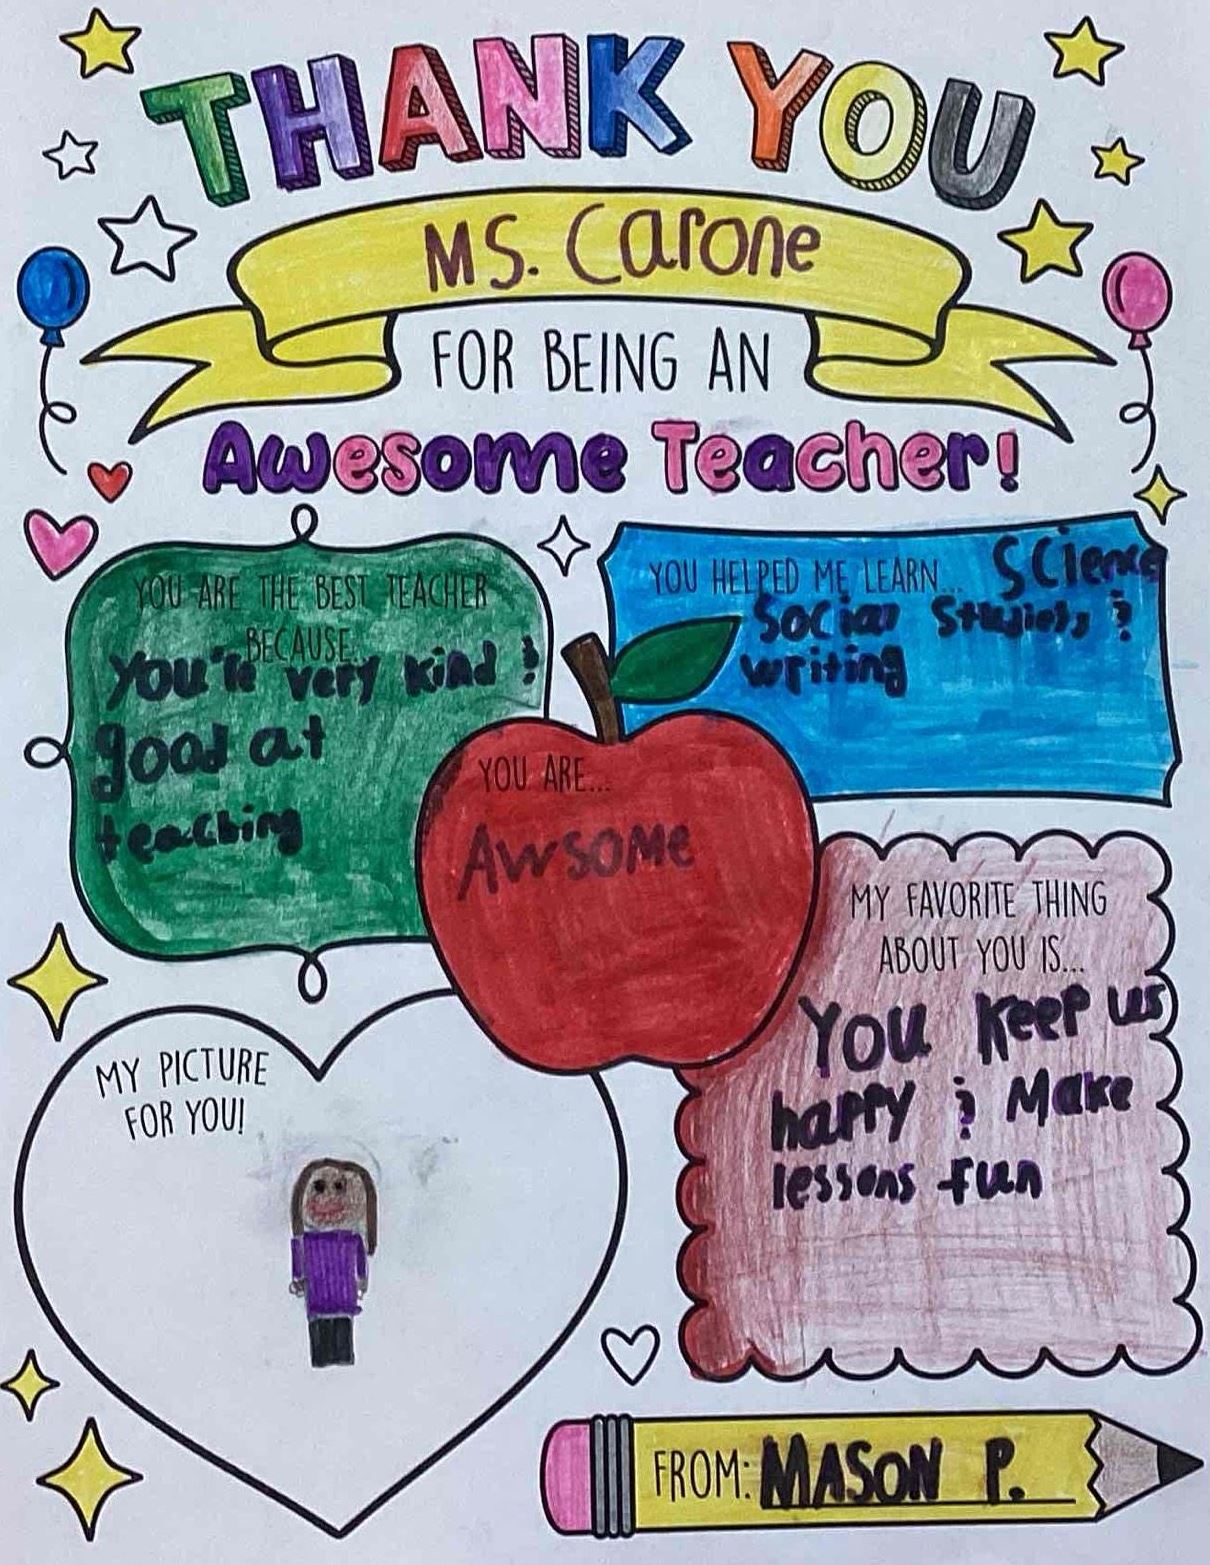 THANK YOU
MS. Carone
FOR BEING AN
Awesome Teacher!
YOU ARE THE BEST TEACHER
BECAUSE...
You're very kind &
good at
teaching
YOU HELPED ME LEARN... Science
Social Studies &
writing
YOU ARE...
Awsome
MY FAVORITE THING
ABOUT YOU IS...
You Keep us
happy & Make
lessons fun
MY PICTURE
FOR YOU!
FROM: MASON P.